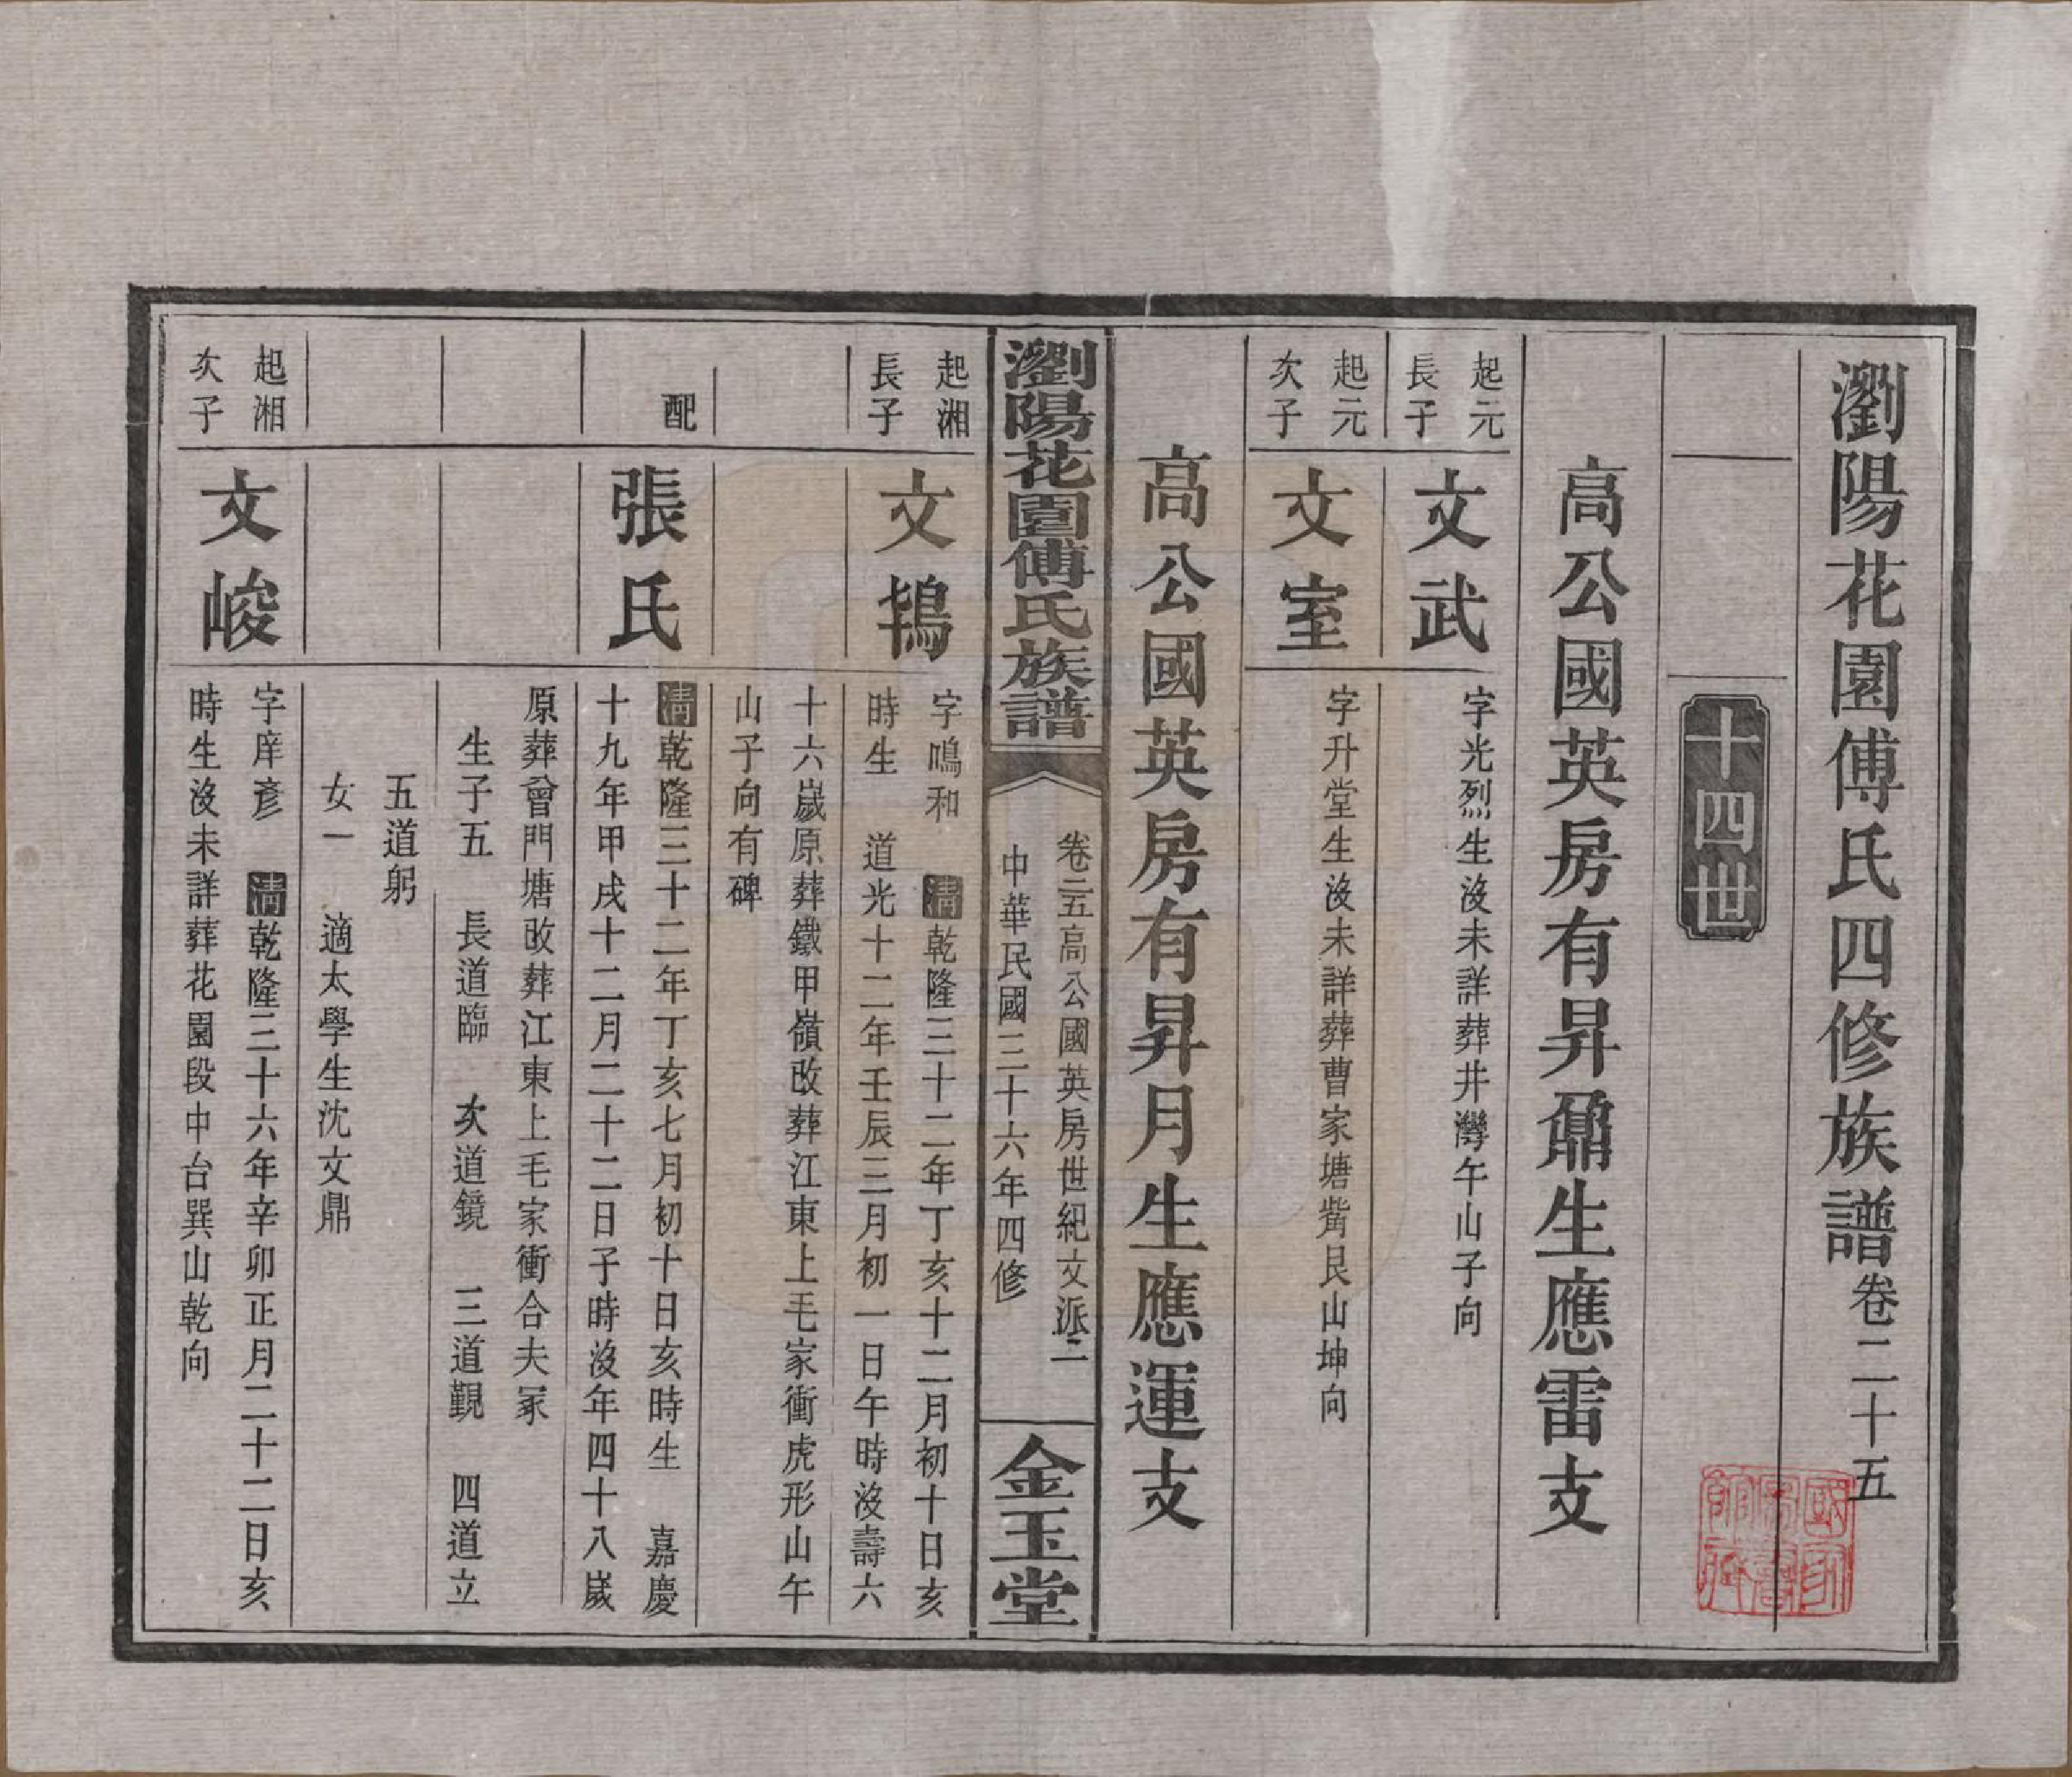 瀏陽花園傅氏四修族譜卷二十五
十四世
高公國英房有昇鼐生應雷支
起元長子
文武
字光烈生沒未詳葬井灣午山子向
起元次子
文室
字升堂生沒未詳葬曹家塘觜艮山坤向
高公國英房有昇月生應運支
瀏陽花園傅氏族譜
卷二五高公國英房世紀文派二
中華民國三十六年四修
金玉堂
起湘長子
文鴾
字鳴和 清乾隆三十二年丁亥十二月初十日亥
時生 道光十二年壬辰三月初一日午時沒壽六
十六歲原葬鐵甲嶺改葬江東上毛家衝虎形山午
山子向有碑
配
張氏
清乾隆三十二年丁亥七月初十日亥時生 嘉慶
十九年甲戌十二月二十二日子時沒年四十八歲
原葬曾門塘改葬江東上毛家衝合夫冢
生子五 長道臨 次道鏡 三道觀 四道立
五道躬
女一 適太學生沈文鼎
起湘次子
文峻
字庠彥 清乾隆三十六年辛卯正月二十二日亥
時生沒未詳葬花園段中台巽山乾向